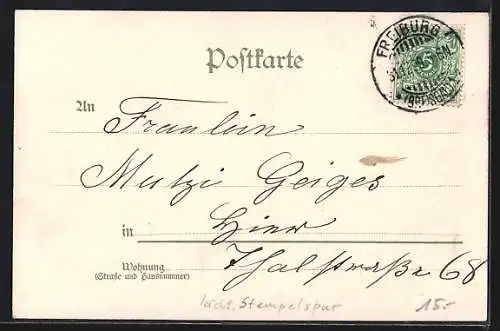 Postkarte
FREIBURG
5
(BREISGAU)
An
Fraulein
Mutzi Geiges
in Hier
Wohnung
(Straße und Hausnummer)
Thalstraße 68
Stempelspur
15.-